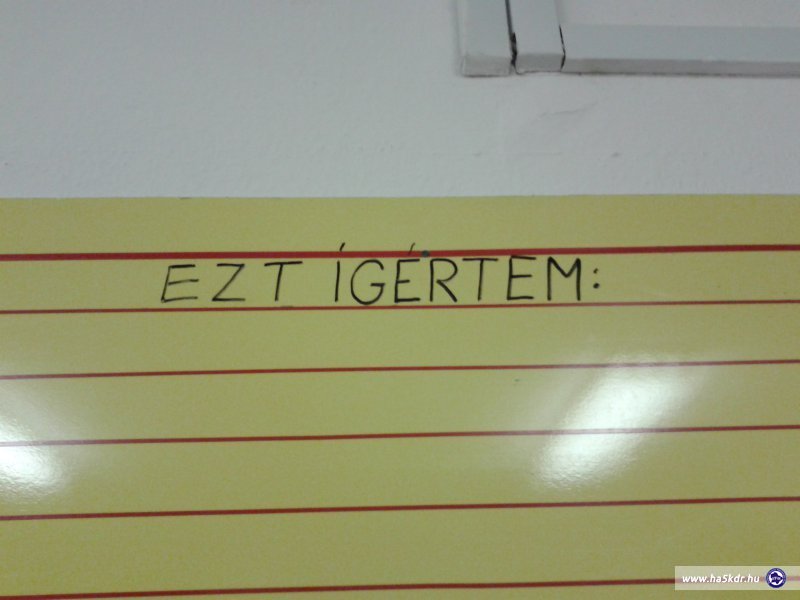 EZT ÍGÉRTEM:
www.ha5kdr.hu